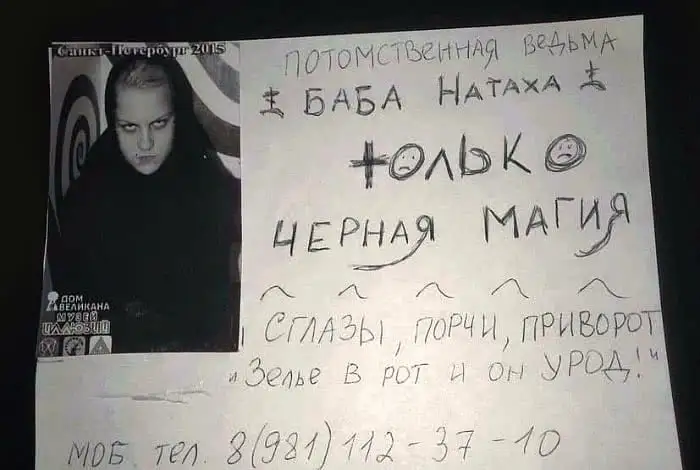 Санкт-Петербург 2015
ПОТОМСТВЕННАЯ ВЕДЬМА
БАБА НАТАХА
ТОЛЬКО
ЧЕРНАЯ МАГИЯ
СГЛАЗЫ, ПОРЧИ, ПРИВОРОТ
"Зелье В РОТ И ОН УРОД!"
МОБ. тел. 8(981)112-37-10
ДОМ
ВЕЛИКАНА
МУЗЕЙ
ИЛЛЮЗИЙ